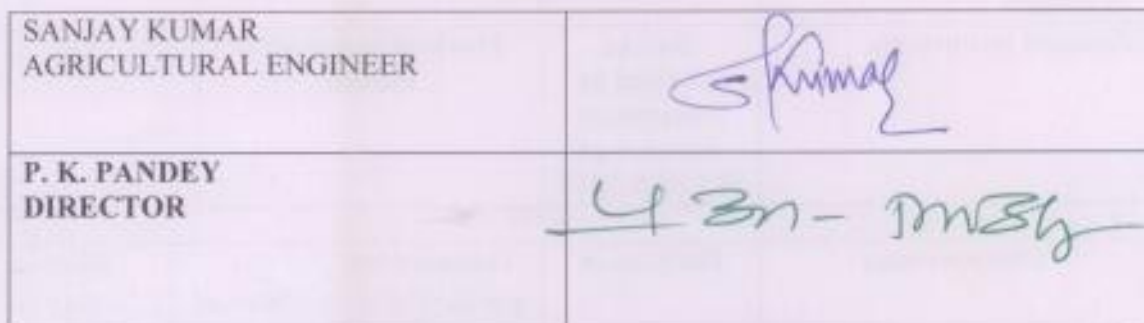 SANJAY KUMAR
AGRICULTURAL ENGINEER
SKumar
P. K. PANDEY
DIRECTOR